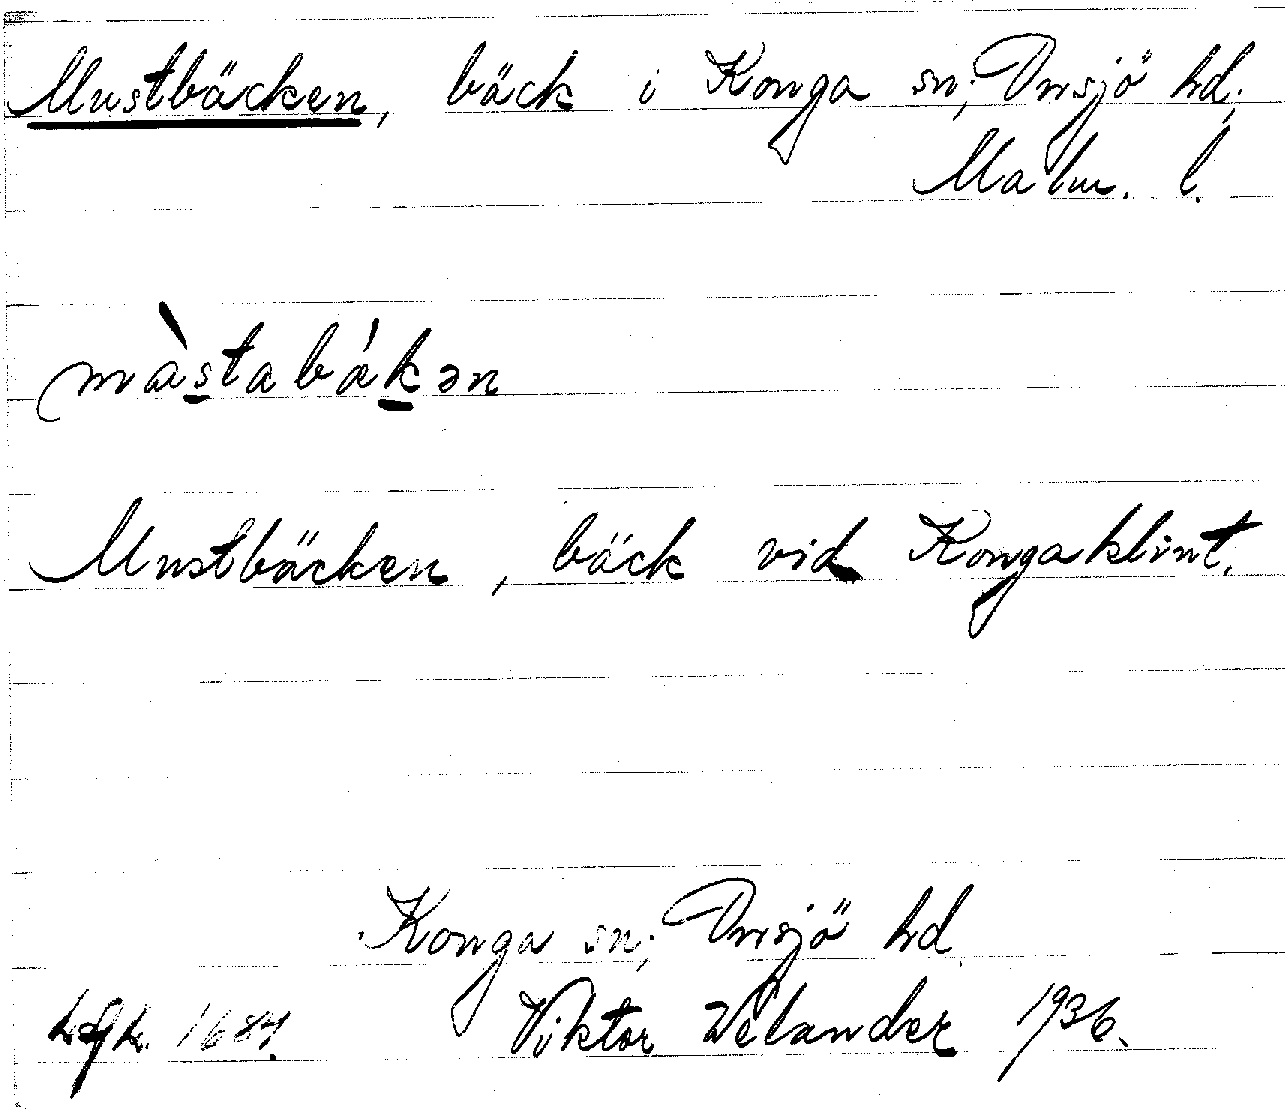 Mustbäcken, bäck i Konga sn; Onsjö hd;
Malm. l.
màstabákən
Mustbäcken, bäck vid Kongaklint.
Konga sn; Onsjö hd
1684.
Viktor Welander 1936.